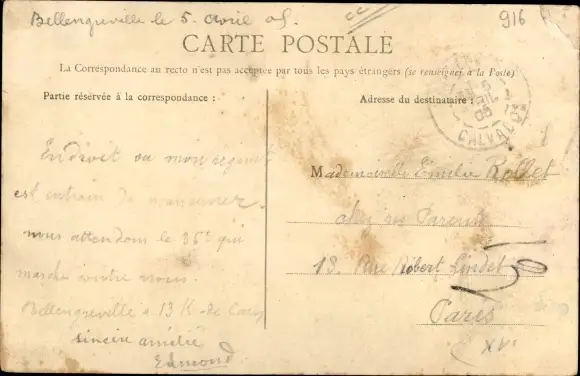 Bellengreville le 5. Avril 05.
916
CARTE POSTALE
La Correspondance au recto n'est pas acceptée par tous les pays étrangers (se renseigner à la Poste)
Partie réservée à la correspondance :
Endroit ou mon régiment
est entrain de manœuvrer.
nous attendons le 36e qui
marche contre nous.
Bellengreville a 13 K. de Caen
sincère amitié
Edmond
Adresse du destinataire :
CALVADOS
Mademoiselle Emilie Rollet
chez ses Parents
13. Rue Robert Lindet
Paris
XV